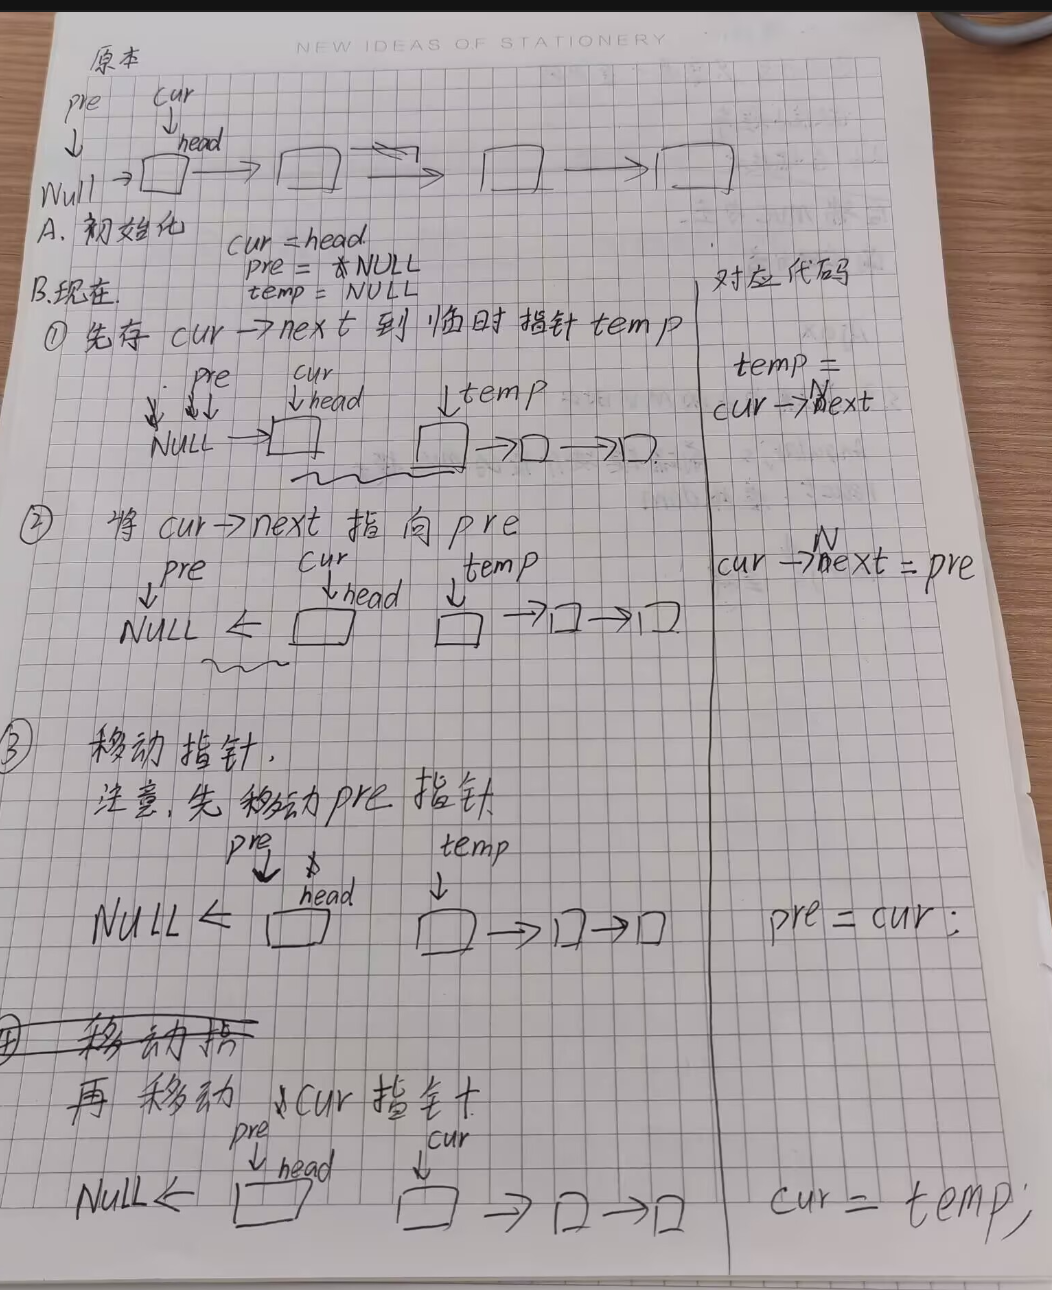 NEW IDEAS OF STATIONERY
原本
pre cur
head
Null
A. 初始化
cur = head
pre = NULL
B.现在.
temp = NULL
对应代码
① 先存 cur→next 到临时指针 temp
temp =
cur→Next
pre cur
head temp
NULL
② 将 cur→next 指向 pre
cur→Next = pre
pre cur temp
head
NULL
③ 移动指针.
注意,先移动pre 指针
pre temp
head
NULL
pre = cur;
移动指
再移动 cur 指针
pre cur
head
NULL
cur = temp;